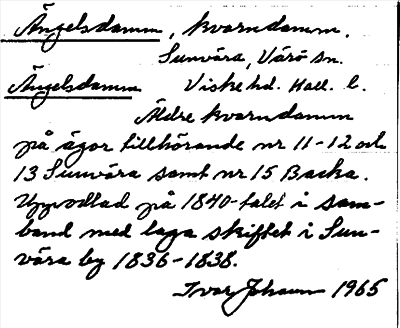 Ängelsdamm, kvarndamm.
Sunvära, Värö sn.
Ängelsdamm Viske hd. Hall. l.
Äldre kvarndamm
på ägor tillhörande nr 11-12 och
13 Sunvära samt nr 15 Backa.
Uppodlad på 1840-talet i sam-
band med laga skiftet i Sun-
vära by 1836-1838.
Ivar Johanson 1965